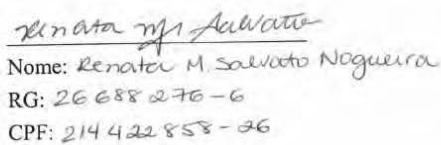 Renata M. Salvato
Nome: Renata M. Salvato Nogueira
RG: 26 688 276-6
CPF: 214 422 858-26